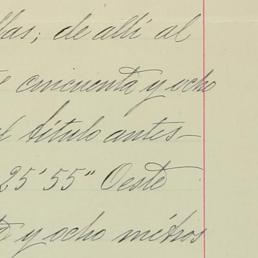 llas; de allí al
cincuenta y ocho
el título antes-
25' 55" Oeste
y ocho metros